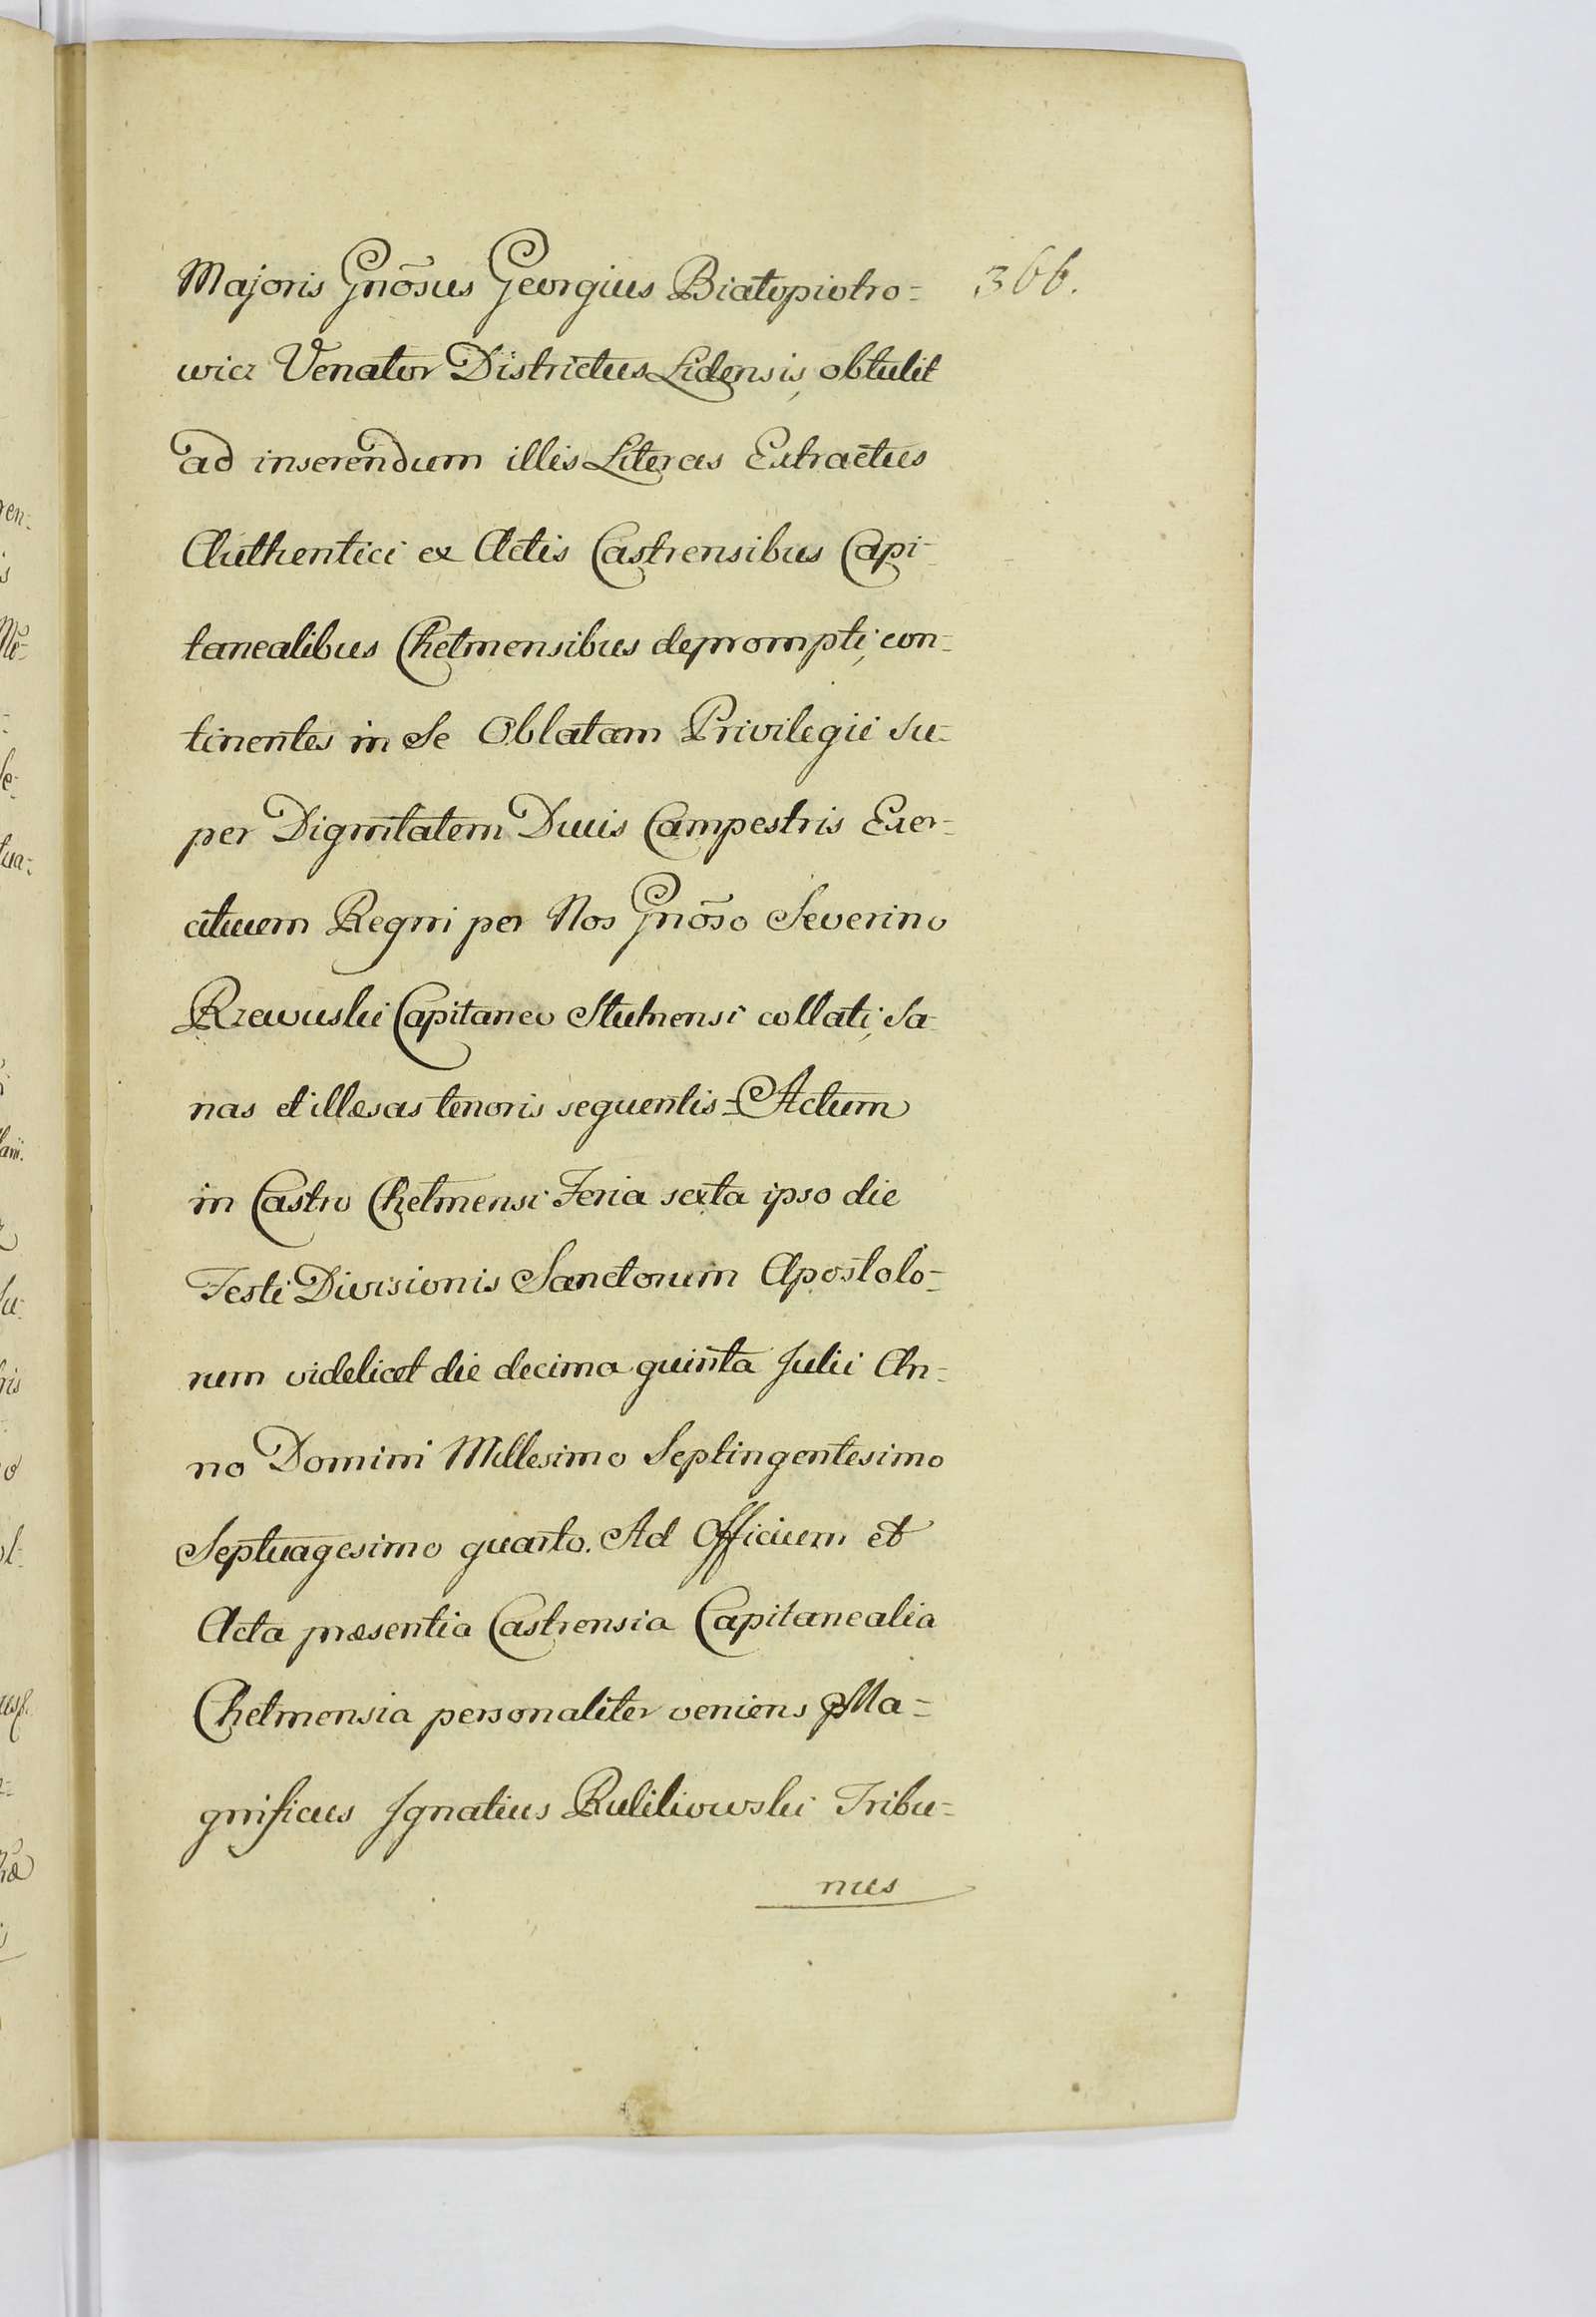 Majoris Gnõsus Georgius Białopiotro=
366.
wicz Venator Districtus Lidensis, obtulit
ad inserendum illis Literas Extractus
Authentici ex Actis Castrensibus Capi-
tanealibus Chełmensibus deprompti, con=
tinentes in se Oblatam Privilegii su=
per Dignitatem Ducis Campestris Exer=
cituum Regni per Nos Gnõso Severino
Rzewuski Capitaneo Stulnensi collati, sa
nas et illæsas tenoris sequentis = Actum
in Castro Chełmensi Feria sexta ipso die
Festi Divisionis Sanctorum Apostolo=
rum videlicet die decima quinta Julii An=
no Domini Millesimo Septingentesimo
Septuagesimo quarto. Ad Officium et
Acta præsentia Castrensia Capitanealia
Chełmensia personaliter veniens Ma=
gnificus Ignatius Kulikowski Tribu=
nus